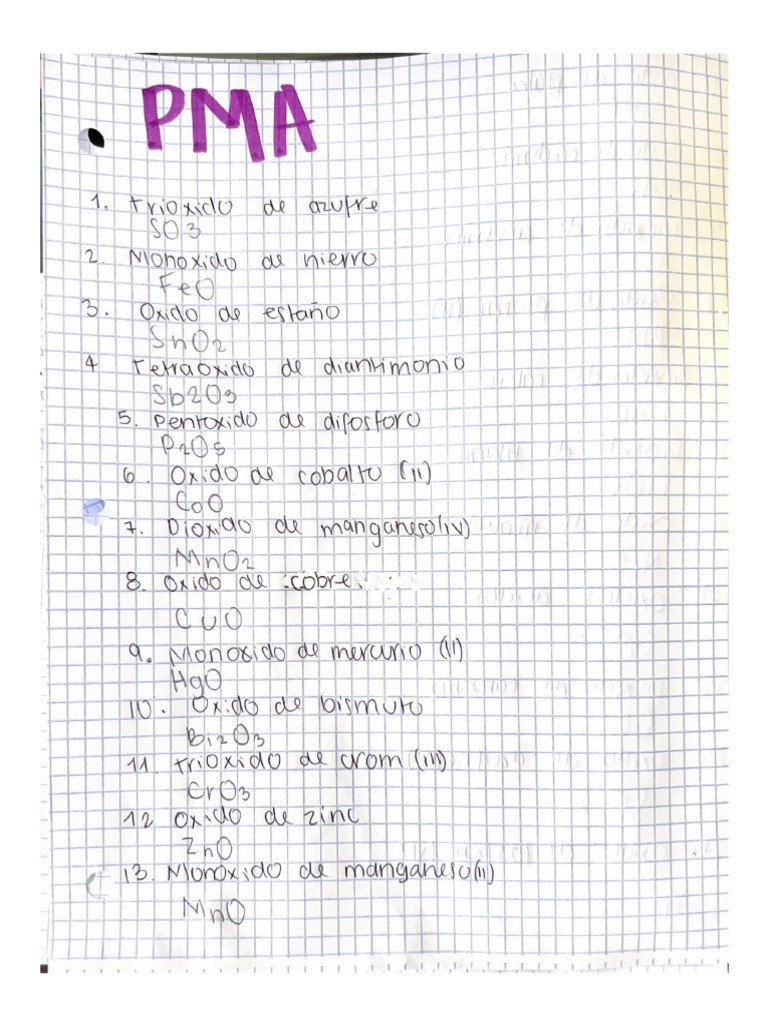 PMA
1. trioxido de azufre
SO3
2. Monoxido de hierro
FeO
3. Oxido de estaño
SnO2
4 Tetraoxido de diantimonio
Sb2O3
5. Pentoxido de difosforo
P2O5
6. Oxido de cobalto (II)
CoO
7. Dioxido de manganeso(IV)
MnO2
8. Oxido de cobre
CuO
9. Monoxido de mercurio (II)
HgO
10. Oxido de bismuto
Bi2O3
11. trioxido de crom (III)
CrO3
12 Oxido de zinc
ZnO
13. Monoxido de manganeso(II)
MnO